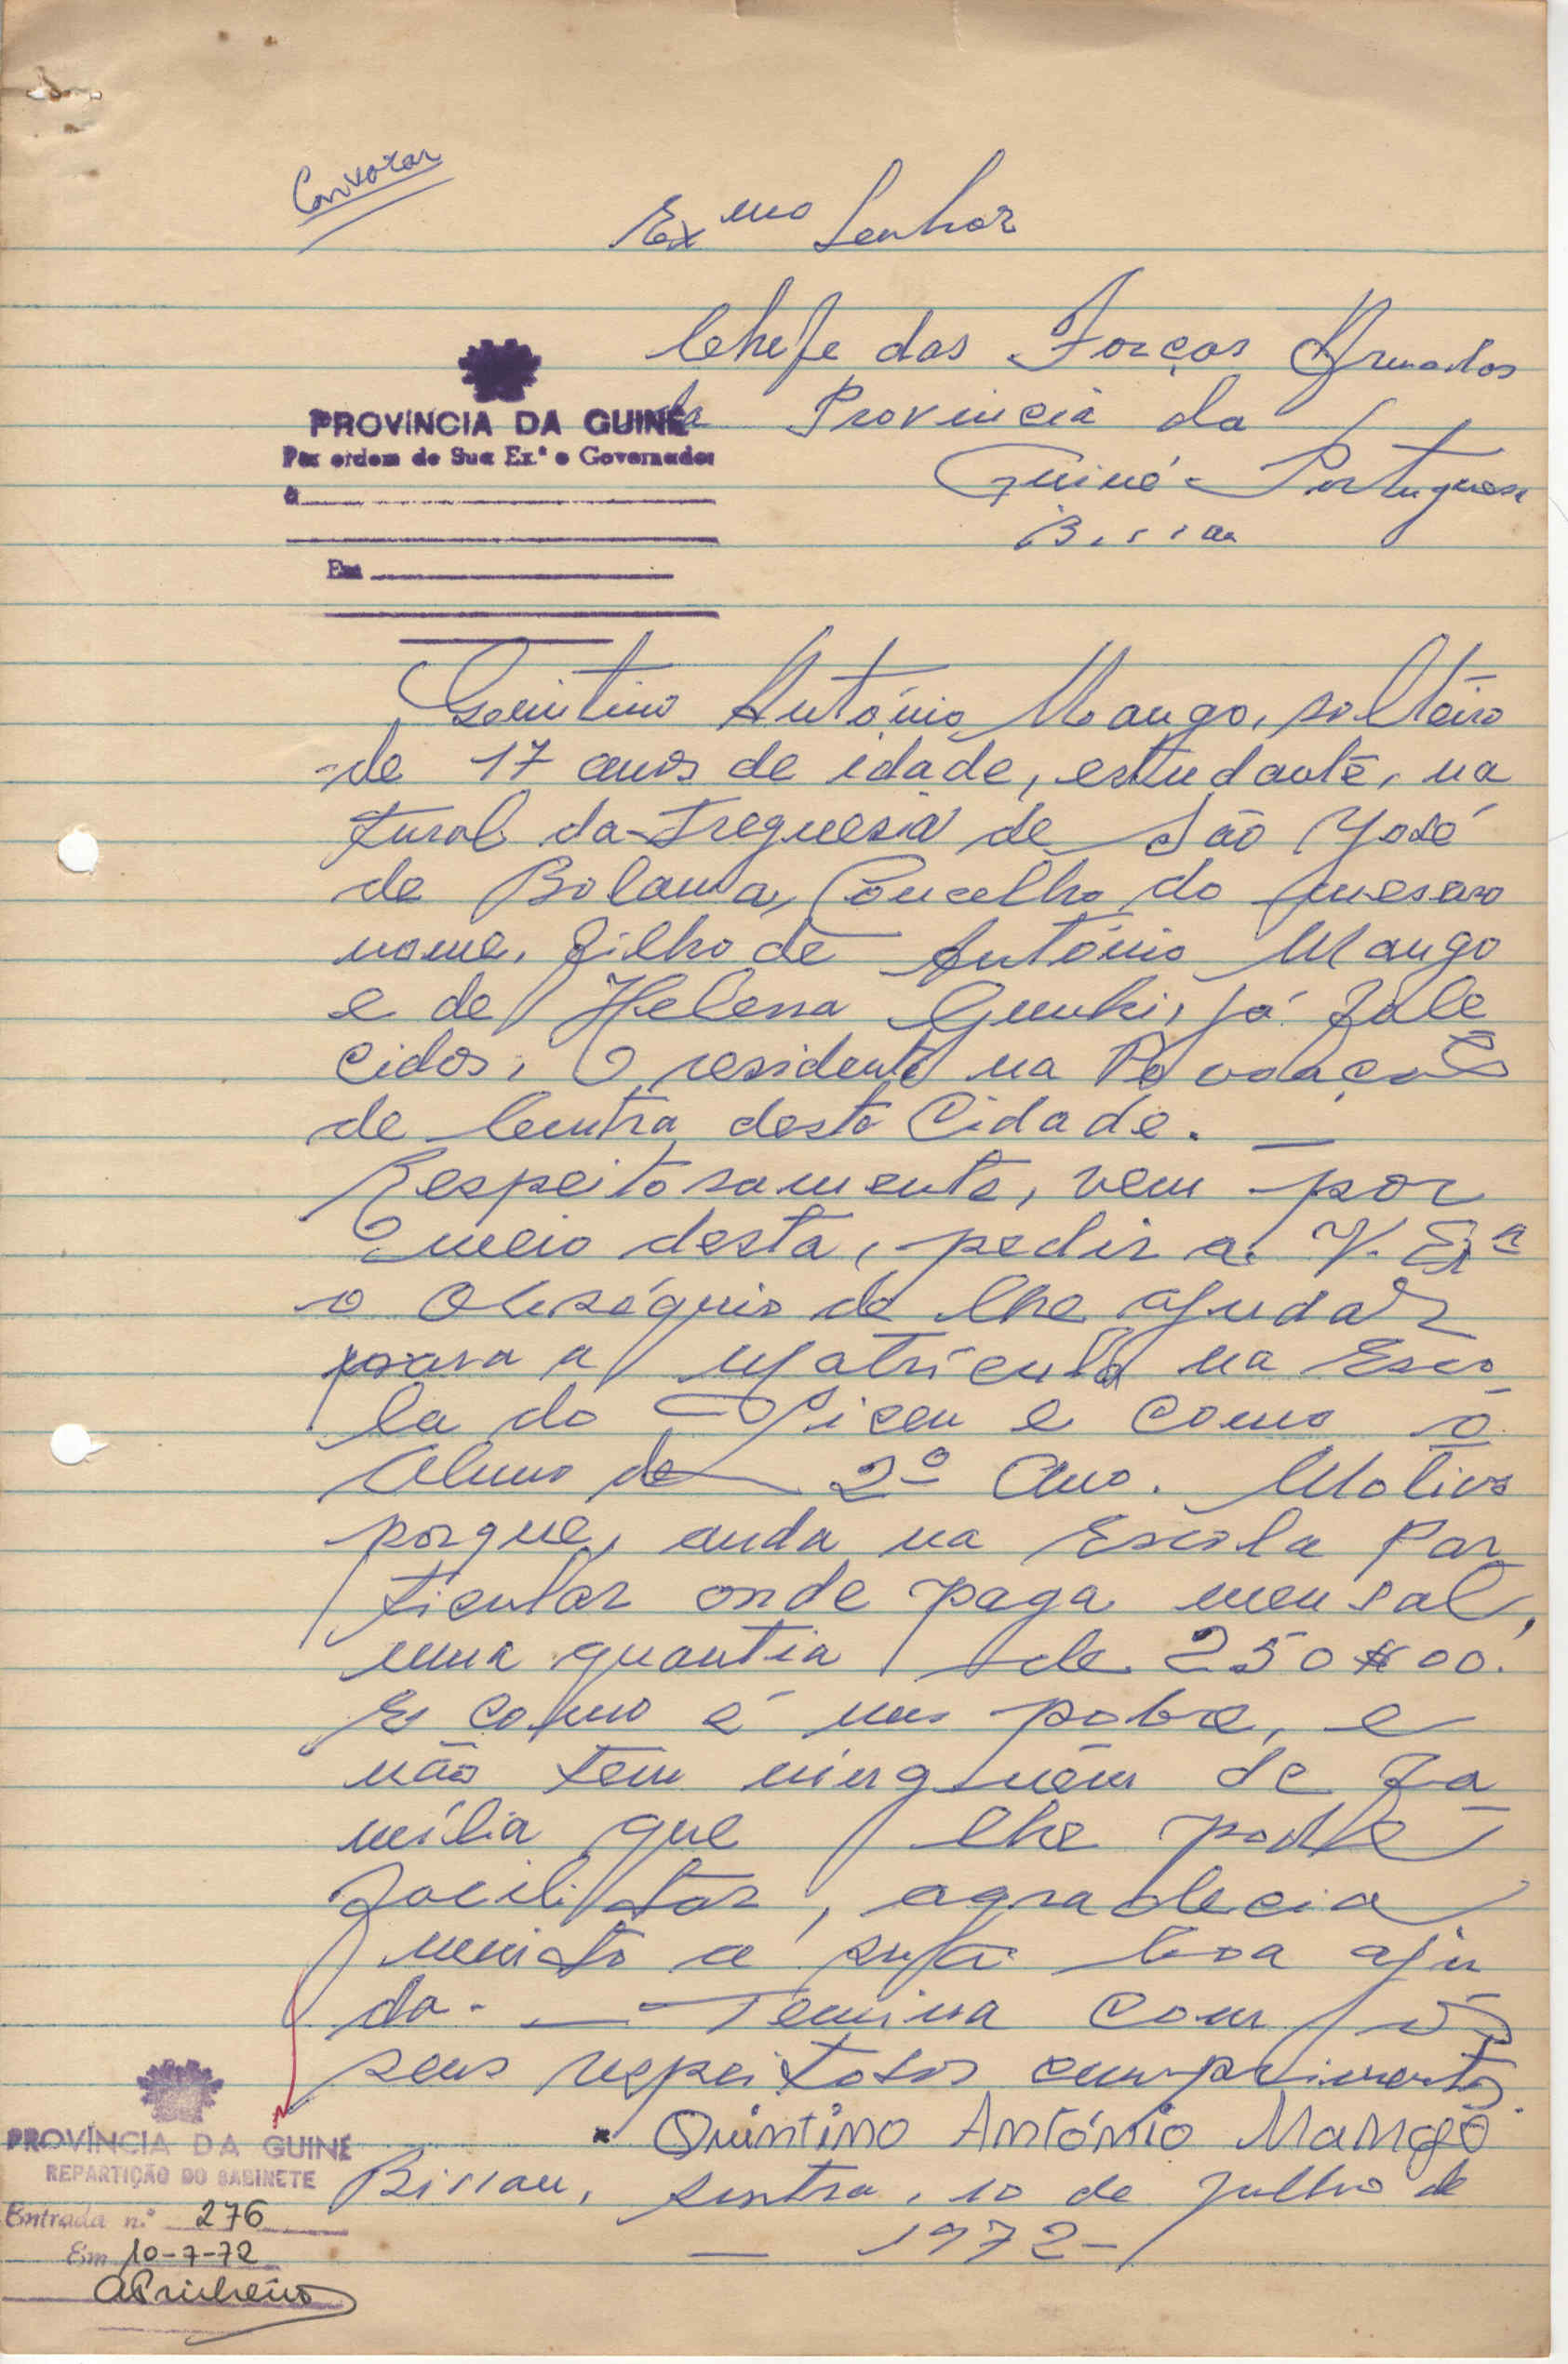 Convocar
Ex.mo Senhor
Chefe das Forças Armadas
da Provincia da
Guiné Portuguesa
Bissau
PROVÍNCIA DA GUINÉ
Por ordem de Sua Ex.ª o Governador
à
Em
Quintino António Mango, solteiro
de 17 anos de idade, estudante, na
tural da Freguesia de São José
de Bolama, Concelho do mesmo
nome, filho de António Mango
e de Helena Gunki, já fale
cidos, e residente na Povoação
de Cuntra desta Cidade. —
Respeitosamente, vem por
meio desta, pedir a V. Exª
o Obséquio de lhe ajudar
para a Matrícula na Esco
la do Liceu e como o
Aluno de 2º Ano. Motivo
porque, anda na Escola Par
ticular onde paga mensal,
uma quantia de 250$00.
E como é um pobre, e
não tem ninguém de fa
mília que lhe pode
facilitar, agradecia
muito a sua boa aju
da. — Temina com os
seus respeitosos cumprimentos.
Quintino António Mango
Bissau, Sintra, 10 de Julho de
— 1972 —
PROVÍNCIA DA GUINÉ
REPARTIÇÃO DO GABINETE
Entrada n.º 276
Em 10-7-72